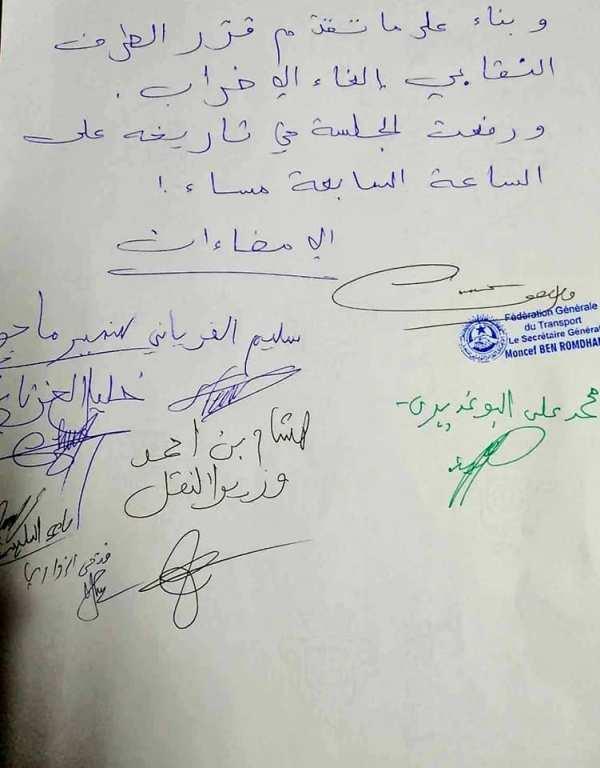 وبناء على ما تقدم قرر الطرف
النقابي إلغاء الإضراب.
ورفعت الجلسة في تاريخه على
الساعة السابعة مساء!
الإمضاءات
Fédération Générale
du Transport
Le Secrétaire Général
Moncef BEN ROMDHAN
سليم الفرياني
محمد علي البوغديري
هشام بن احمد
وزير النقل
فتحي الزواري